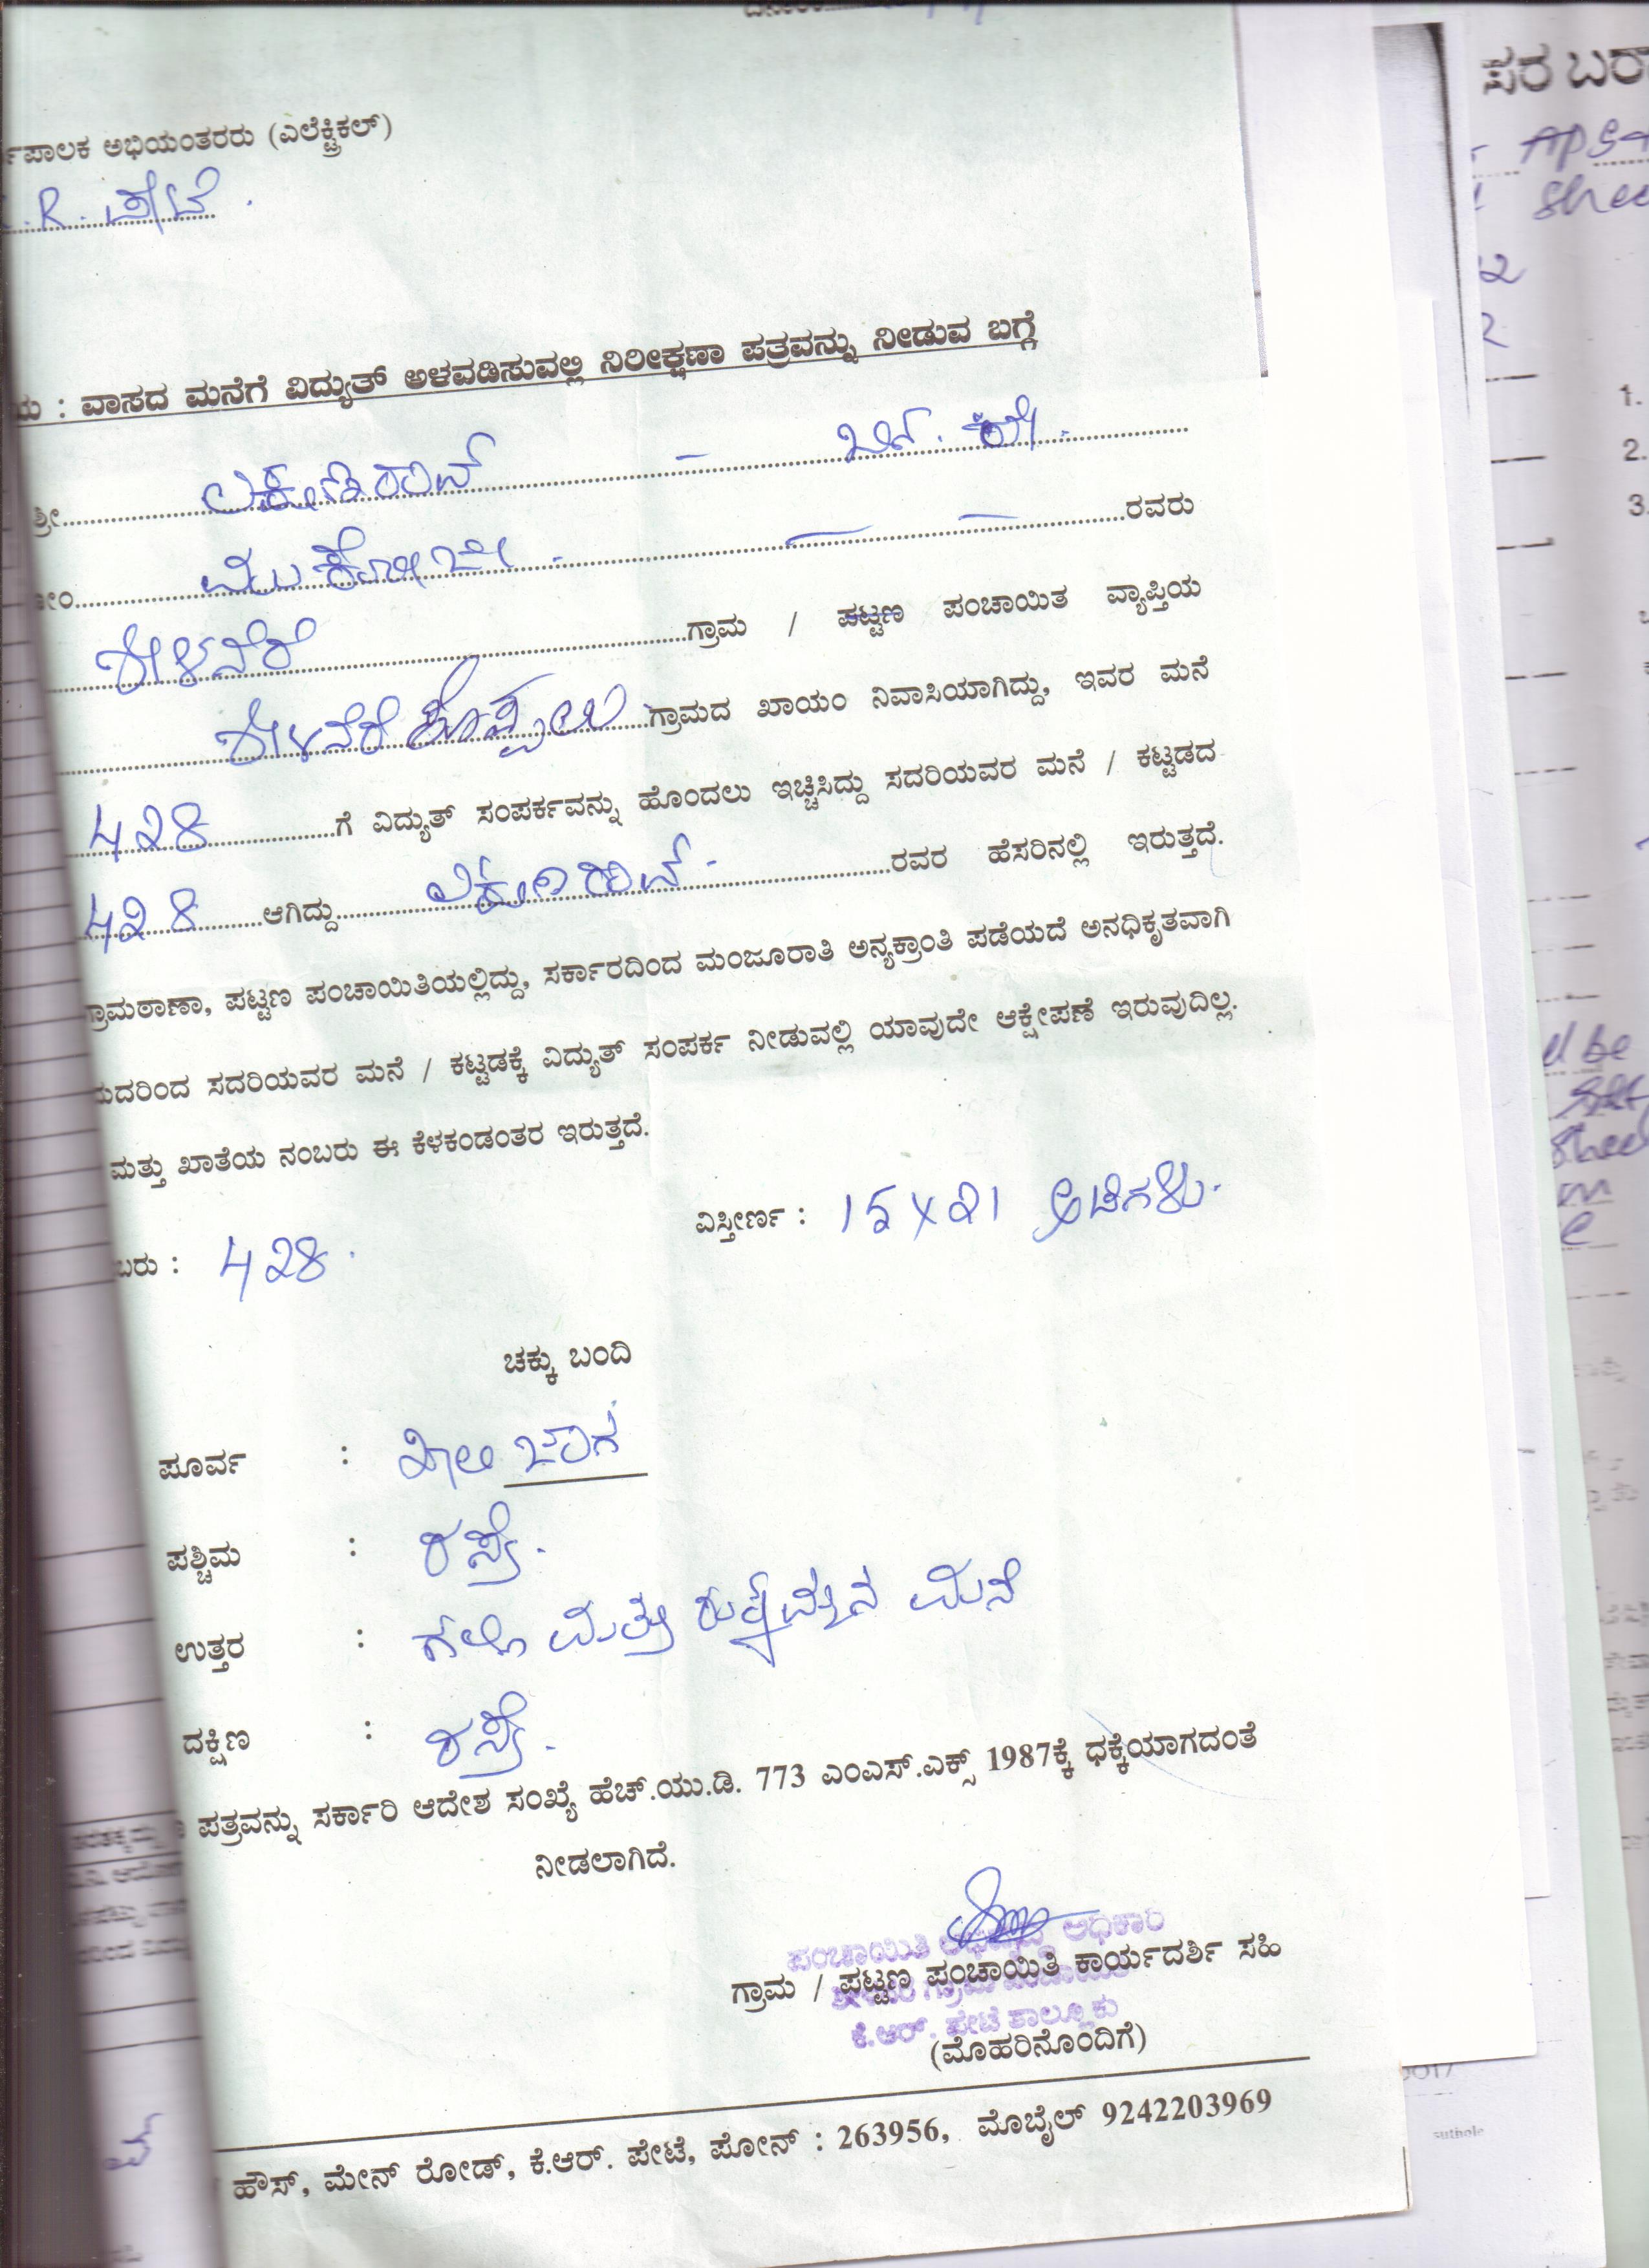 ರ್ಯಪಾಲಕ ಅಭಿಯಂತರರು (ಎಲೆಕ್ಟ್ರಿಕಲ್)
.R. ಪೇಟೆ.
ಯ : ವಾಸದ ಮನೆಗೆ ವಿದ್ಯುತ್ ಅಳವಡಿಸುವಲ್ಲಿ ನಿರೀಕ್ಷಣಾ ಪತ್ರವನ್ನು ನೀಡುವ ಬಗ್ಗೆ
ಶ್ರೀ ಲಕ್ಷ್ಮಣರಾವ್ - ಬಿನ್.
ರವರು
ಶೀಳನೆರೆ ಗ್ರಾಮ / ಪಟ್ಟಣ ಪಂಚಾಯಿತ ವ್ಯಾಪ್ತಿಯ
ಶೀಳನೆರೆ ಕೊಪ್ಪಲು ಗ್ರಾಮದ ಖಾಯಂ ನಿವಾಸಿಯಾಗಿದ್ದು, ಇವರ ಮನೆ
428 ಗೆ ವಿದ್ಯುತ್ ಸಂಪರ್ಕವನ್ನು ಹೊಂದಲು ಇಚ್ಚಿಸಿದ್ದು ಸದರಿಯವರ ಮನೆ / ಕಟ್ಟಡದ
428 ಆಗಿದ್ದು ಲಕ್ಷ್ಮಣರಾವ್ ರವರ ಹೆಸರಿನಲ್ಲಿ ಇರುತ್ತದೆ.
ಗ್ರಾಮಠಾಣಾ, ಪಟ್ಟಣ ಪಂಚಾಯಿತಿಯಲ್ಲಿದ್ದು, ಸರ್ಕಾರದಿಂದ ಮಂಜೂರಾತಿ ಅನ್ಯಕ್ರಾಂತಿ ಪಡೆಯದೆ ಅನಧಿಕೃತವಾಗಿ
ುದರಿಂದ ಸದರಿಯವರ ಮನೆ / ಕಟ್ಟಡಕ್ಕೆ ವಿದ್ಯುತ್ ಸಂಪರ್ಕ ನೀಡುವಲ್ಲಿ ಯಾವುದೇ ಆಕ್ಷೇಪಣೆ ಇರುವುದಿಲ್ಲ.
ಮತ್ತು ಖಾತೆಯ ನಂಬರು ಈ ಕೆಳಕಂಡಂತರ ಇರುತ್ತದೆ.
ಬರು : 428. ವಿಸ್ತೀರ್ಣ : 15 X 21 ಅಡಿಗಳು.
ಚಕ್ಕು ಬಂದಿ
ಪೂರ್ವ : ಖಾಲಿ ಜಾಗ
ಪಶ್ಚಿಮ : ರಸ್ತೆ.
ಉತ್ತರ : ಗಲ್ಲಿ ಮತ್ತು ಮನೆ
ದಕ್ಷಿಣ : ರಸ್ತೆ.
ಪತ್ರವನ್ನು ಸರ್ಕಾರಿ ಆದೇಶ ಸಂಖ್ಯೆ ಹೆಚ್.ಯು.ಡಿ. 773 ಎಂಎಸ್.ಎಕ್ಸ್ 1987ಕ್ಕೆ ಧಕ್ಕೆಯಾಗದಂತೆ
ನೀಡಲಾಗಿದೆ.
ಪಂಚಾಯಿತಿ ಅಭಿವೃದ್ಧಿ ಅಧಿಕಾರಿ
ಗ್ರಾಮ / ಪಟ್ಟಣ ಪಂಚಾಯಿತಿ ಕಾರ್ಯದರ್ಶಿ ಸಹಿ
ಕೆ.ಆರ್. ಪೇಟೆ ತಾಲ್ಲೂಕು
(ಮೊಹರಿನೊಂದಿಗೆ)
ಹೌಸ್, ಮೇನ್ ರೋಡ್, ಕೆ.ಆರ್. ಪೇಟೆ, ಫೋನ್ : 263956, ಮೊಬೈಲ್ 9242203969
1.
2.
3.